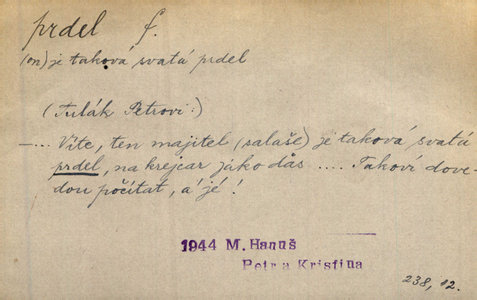 prdel f.
(on) je taková svatá prdel
(Tulák Petrovi:)
—... Víte, ten majitel (salaše) je taková svatá
prdel, na krejcar jako dås .... Takoví dove-
dou počítat, a jé!
1944 M. Hanuš
Petr a Kristina
238, 12.